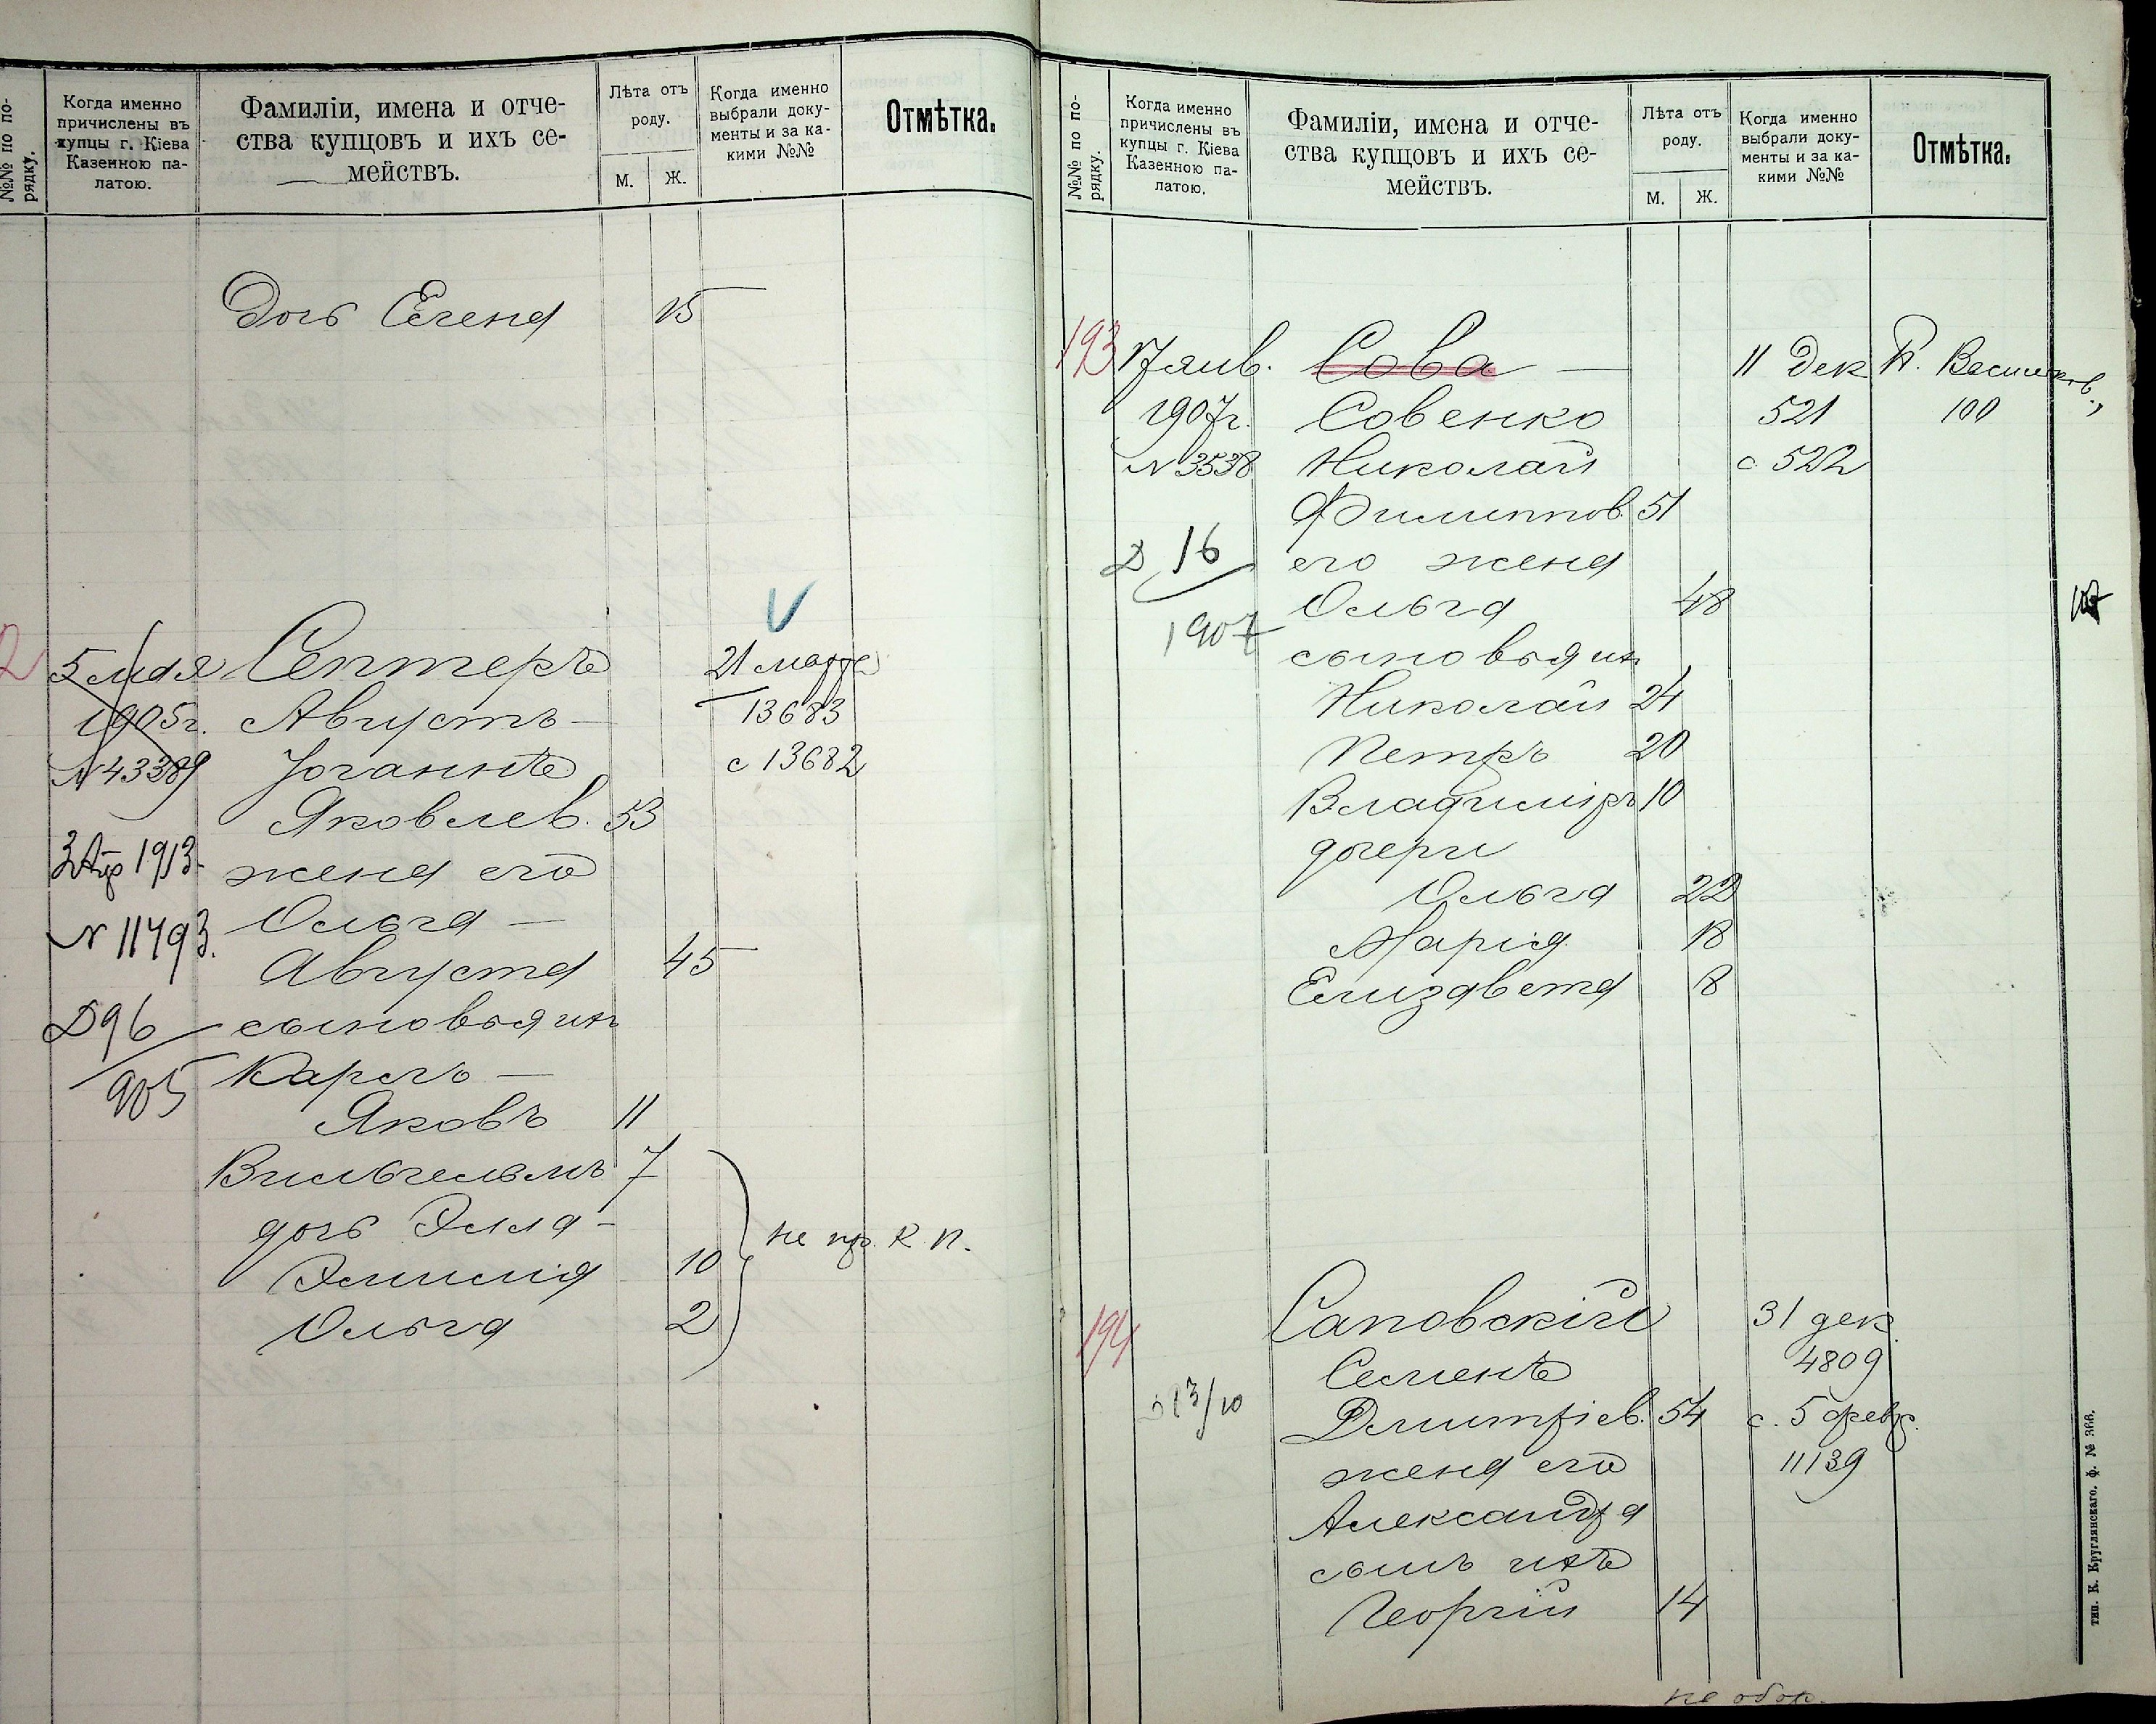 №№ по по-
рядку.
Когда именно
причислены въ
купцы г. Кіева
Казенною па-
латою.
Фамиліи, имена и отче-
ства купцовъ и ихъ се-
мействъ.
Лѣта отъ
роду.
М. Ж.
Когда именно
выбрали доку-
менты и за ка-
кими №№
Отмѣтка.
Дочь Елена 15
2 5 мая Септеръ 21 марта
1905 г. Августъ – 13683
№ 43389 Іоганнъ с 13682
Яковлев. 53
3 Апр 1913 жена его
№ 11793. Ольга –
Августа 45
Д 96 сыновья ихъ
905 Карлъ –
Яковъ 11
Вильгельмъ 7
дочь Элла –
Эмилія 10 не пр. К. П.
Ольга 2
№№ по по-
рядку.
Когда именно
причислены въ
купцы г. Кіева
Казенною па-
латою.
Фамиліи, имена и отче-
ства купцовъ и ихъ се-
мействъ.
Лѣта отъ
роду.
М. Ж.
Когда именно
выбрали доку-
менты и за ка-
кими №№
Отмѣтка.
193 17 янв. Сова – 11 Дек
1907 г. Совенко 521 100
№ 3538 Николай с 522
Филиппов. 51
Д 16 его жена
Ольга 48
1907 сыновья ихъ
Николай 24
Петръ 20
Владиміръ 10
дочери
Ольга 22
Марія 18
Елизавета 8
194 Саповскій 31 дек.
Семенъ 4809
Д 13/10 Дмитріев. 54 с. 5 февр.
жена его 11139
Александра
сынъ ихъ
Георгій 14
тип. К. Круглянскаго, ф. № 366.